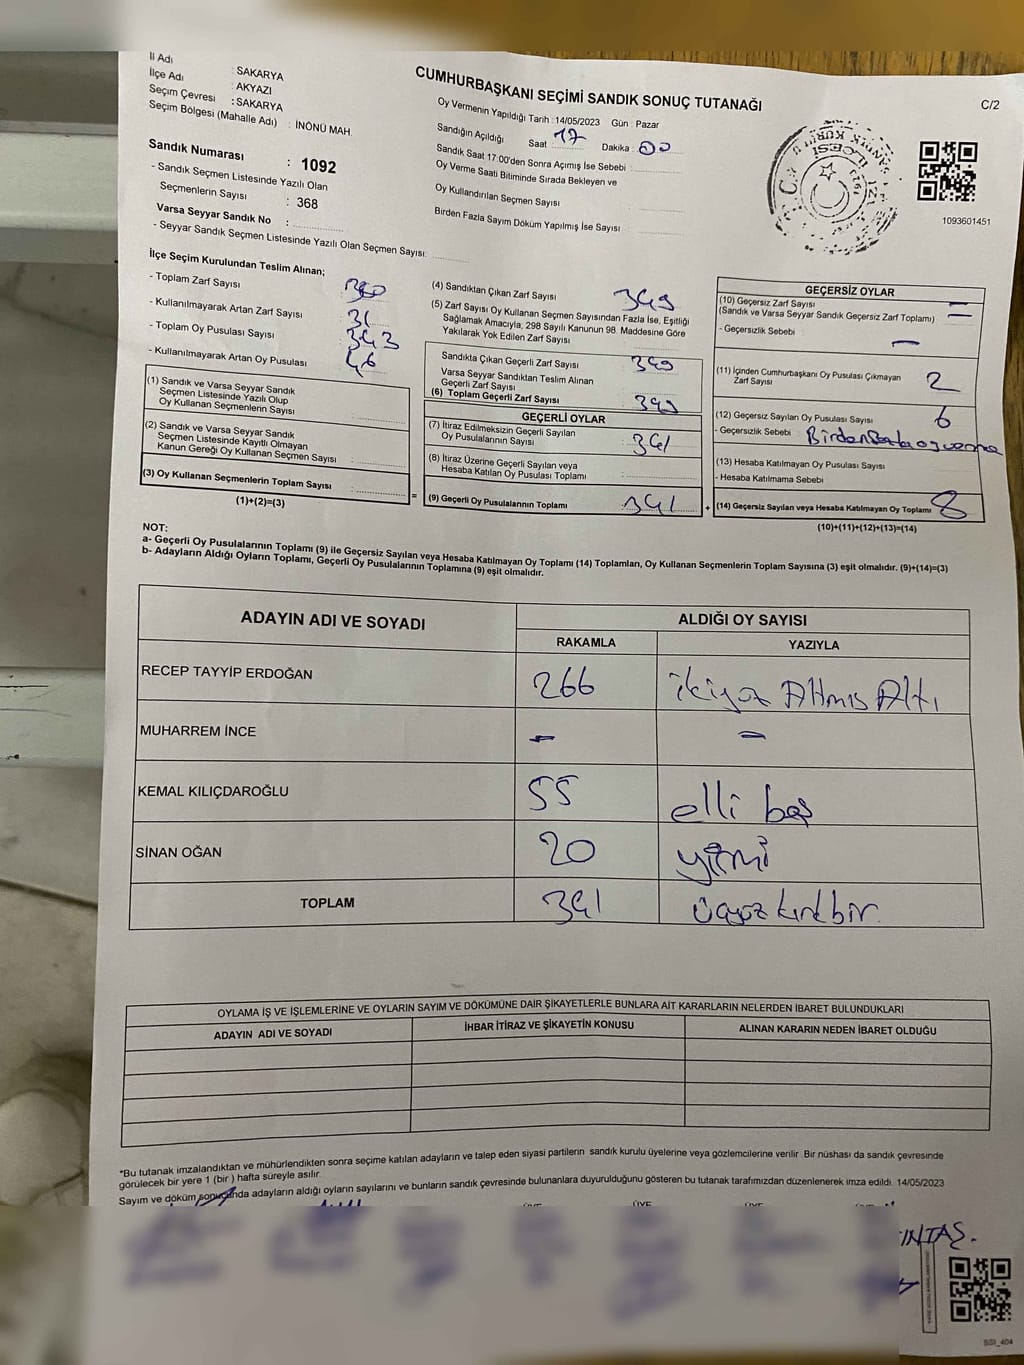 İl Adı : SAKARYA
İlçe Adı : AKYAZI
Seçim Çevresi : SAKARYA
Seçim Bölgesi (Mahalle Adı) : İNÖNÜ MAH.
CUMHURBAŞKANI SEÇİMİ SANDIK SONUÇ TUTANAĞI
C/2
Oy Vermenin Yapıldığı Tarih : 14/05/2023 Gün : Pazar
Sandığın Açıldığı Saat : 17 Dakika : 00
Sandık Saat 17:00'den Sonra Açımış İse Sebebi :
Oy Verme Saati Bitiminde Sırada Bekleyen ve
Oy Kullandırılan Seçmen Sayısı :
Birden Fazla Sayım Döküm Yapılmış İse Sayısı :
1093601451
Sandık Numarası : 1092
- Sandık Seçmen Listesinde Yazılı Olan
Seçmenlerin Sayısı : 368
Varsa Seyyar Sandık No :
- Seyyar Sandık Seçmen Listesinde Yazılı Olan Seçmen Sayısı:
İlçe Seçim Kurulundan Teslim Alınan;
- Toplam Zarf Sayısı
- Kullanılmayarak Artan Zarf Sayısı : 31
- Toplam Oy Pusulası Sayısı
- Kullanılmayarak Artan Oy Pusulası : 46
(1) Sandık ve Varsa Seyyar Sandık
Seçmen Listesinde Yazılı Olup
Oy Kullanan Seçmenlerin Sayısı :
(2) Sandık ve Varsa Seyyar Sandık
Seçmen Listesinde Kayıtlı Olmayan
Kanun Gereği Oy Kullanan Seçmen Sayısı :
(3) Oy Kullanan Seçmenlerin Toplam Sayısı :
(1)+(2)=(3)
(4) Sandıktan Çıkan Zarf Sayısı : 349
(5) Zarf Sayısı Oy Kullanan Seçmen Sayısından Fazla İse, Eşitliği
Sağlamak Amacıyla, 298 Sayılı Kanunun 98. Maddesine Göre
Yakılarak Yok Edilen Zarf Sayısı :
Sandıkta Çıkan Geçerli Zarf Sayısı : 349
Varsa Seyyar Sandıktan Teslim Alınan
Geçerli Zarf Sayısı :
(6) Toplam Geçerli Zarf Sayısı : 349
GEÇERLİ OYLAR
(7) İtiraz Edilmeksizin Geçerli Sayılan
Oy Pusulalarının Sayısı : 341
(8) İtiraz Üzerine Geçerli Sayılan veya
Hesaba Katılan Oy Pusulası Toplamı :
= (9) Geçerli Oy Pusulalarının Toplamı : 341 +
GEÇERSİZ OYLAR
(10) Geçersiz Zarf Sayısı –
(Sandık ve Varsa Seyyar Sandık Geçersiz Zarf Toplamı) –
- Geçersizlik Sebebi –
(11) İçinden Cumhurbaşkanı Oy Pusulası Çıkmayan
Zarf Sayısı 2
(12) Geçersiz Sayılan Oy Pusulası Sayısı 6
- Geçersizlik Sebebi Birden fazla oy verme
(13) Hesaba Katılmayan Oy Pusulası Sayısı
- Hesaba Katılmama Sebebi
(14) Geçersiz Sayılan veya Hesaba Katılmayan Oy Toplamı 8
(10)+(11)+(12)+(13)=(14)
NOT:
a- Geçerli Oy Pusulalarının Toplamı (9) ile Geçersiz Sayılan veya Hesaba Katılmayan Oy Toplamı (14) Toplamları, Oy Kullanan Seçmenlerin Toplam Sayısına (3) eşit olmalıdır. (9)+(14)=(3)
b- Adayların Aldığı Oyların Toplamı, Geçerli Oy Pusulalarının Toplamına (9) eşit olmalıdır.
ADAYIN ADI VE SOYADI ALDIĞI OY SAYISI
RAKAMLA YAZIYLA
RECEP TAYYİP ERDOĞAN 266 ikiyüz Altmış Altı
MUHARREM İNCE – –
KEMAL KILIÇDAROĞLU 55 elli beş
SİNAN OĞAN 20 yirmi
TOPLAM 341 üçyüz kırk bir
OYLAMA İŞ VE İŞLEMLERİNE VE OYLARIN SAYIM VE DÖKÜMÜNE DAİR ŞİKAYETLERLE BUNLARA AİT KARARLARIN NELERDEN İBARET BULUNDUKLARI
ADAYIN ADI VE SOYADI İHBAR İTİRAZ VE ŞİKAYETİN KONUSU ALINAN KARARIN NEDEN İBARET OLDUĞU
*Bu tutanak imzalandıktan ve mühürlendikten sonra seçime katılan adayların ve talep eden siyasi partilerin sandık kurulu üyelerine veya gözlemcilerine verilir. Bir nüshası da sandık çevresinde
görülecek bir yere 1 (bir ) hafta süreyle asılır.
Sayım ve döküm sonucunda adayların aldığı oyların sayılarını ve bunların sandık çevresinde bulunanlara duyurulduğunu gösteren bu tutanak tarafımızdan düzenlenerek imza edildi. 14/05/2023
ÜYE
INTAŞ.
SSI_404